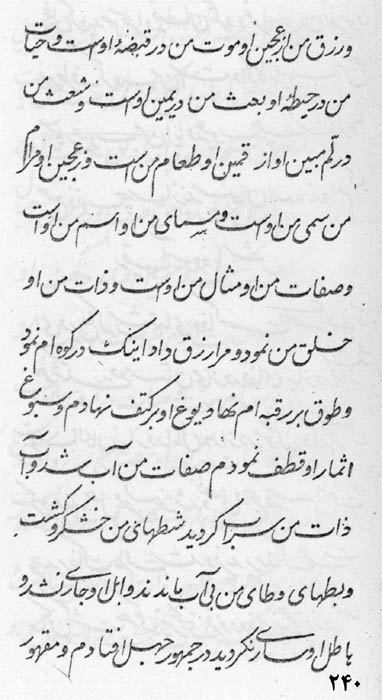 و رزق من از عجین او موت من در قبضهٔ اوست و حیات
من در حیطهٔ او بعث من در یمین اوست و شعث من
در لم یمین او از قمین او طعام من است و ز عجین او مرام
من سمی من اوست و سمای من او اسم من اوست
و صفات من او مثال من اوست و ذات من او
خلق من نمود و مرا رزق داد اینک در کوه ام نمود
و طوق بر رقبه ام نهاد و یوغ او بر کتف نهادم و سبوغ
اثمار او قطف نمودم صفات من آب شد و آب
ذات من سراب گردید شطهای من خشک گشت
و بطهای وطای من بی آب ماندند وابل او جاری نشد و
باطل او ساری نگردید در جمهور جهل افتادم و مقهور
۲۴۰